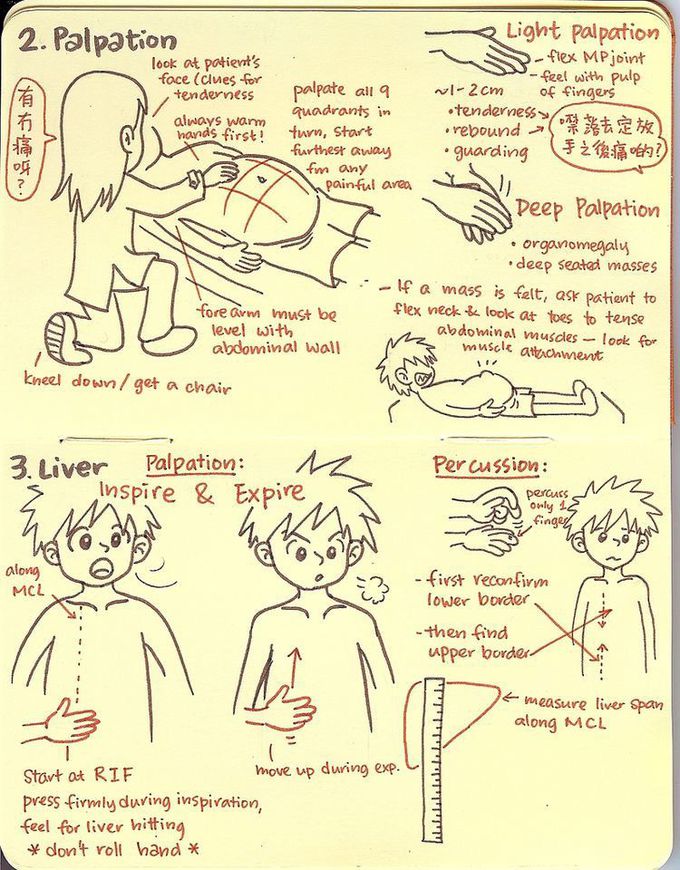 2. Palpation
look at patient's
face (clues for
tenderness
有冇痛呀?
always warm
hands first!
palpate all 9
quadrants in
turn, start
furthest away
fm any
painful area
forearm must be
level with
abdominal wall
kneel down / get a chair
Light palpation
- flex MP joint
- feel with pulp
of fingers
~1-2cm
• tenderness
• rebound
• guarding
手之後痛啲?
Deep Palpation
• organomegaly
• deep seated masses
- If a mass is felt, ask patient to
flex neck & look at toes to tense
abdominal muscles - look for
muscle attachment
3. Liver
Palpation:
Inspire & Expire
along
MCL
Start at RIF
press firmly during inspiration,
feel for liver hitting
* don't roll hand *
move up during exp.
Percussion:
percuss
only 1
finger
- first reconfirm
lower border
- then find
upper border
measure liver span
along MCL